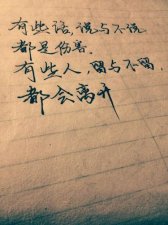 有些话，说与不说
都是伤害.
有些人，留与不留.
都会离开